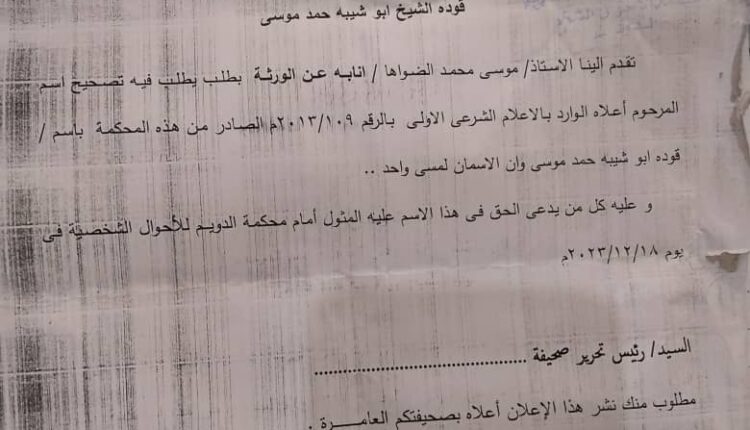 قوده الشيخ ابو شيبه حمد موسى
تقدم الينا الاستاذ/ موسى محمد الضواها / انابه عن الورثة بطلب يطلب فيه تصحيح اسم
المرحوم أعلاه الوارد بالاعلام الشرعى الاولى بالرقم ٢٠١٣/١٠٩م الصادر من هذه المحكمة بأسم /
قوده ابو شيبه حمد موسى وان الاسمان لمسى واحد ..
و عليه كل من يدعى الحق فى هذا الاسم عليه المثول أمام محكمة الدويم للأحوال الشخصية فى
يوم ٢٠٢٣/١٢/١٨م
السيد/ رئيس تحرير صحيفة ........................................
مطلوب منك نشر هذا الإعلان أعلاه بصحيفتكم العامـــــرة .